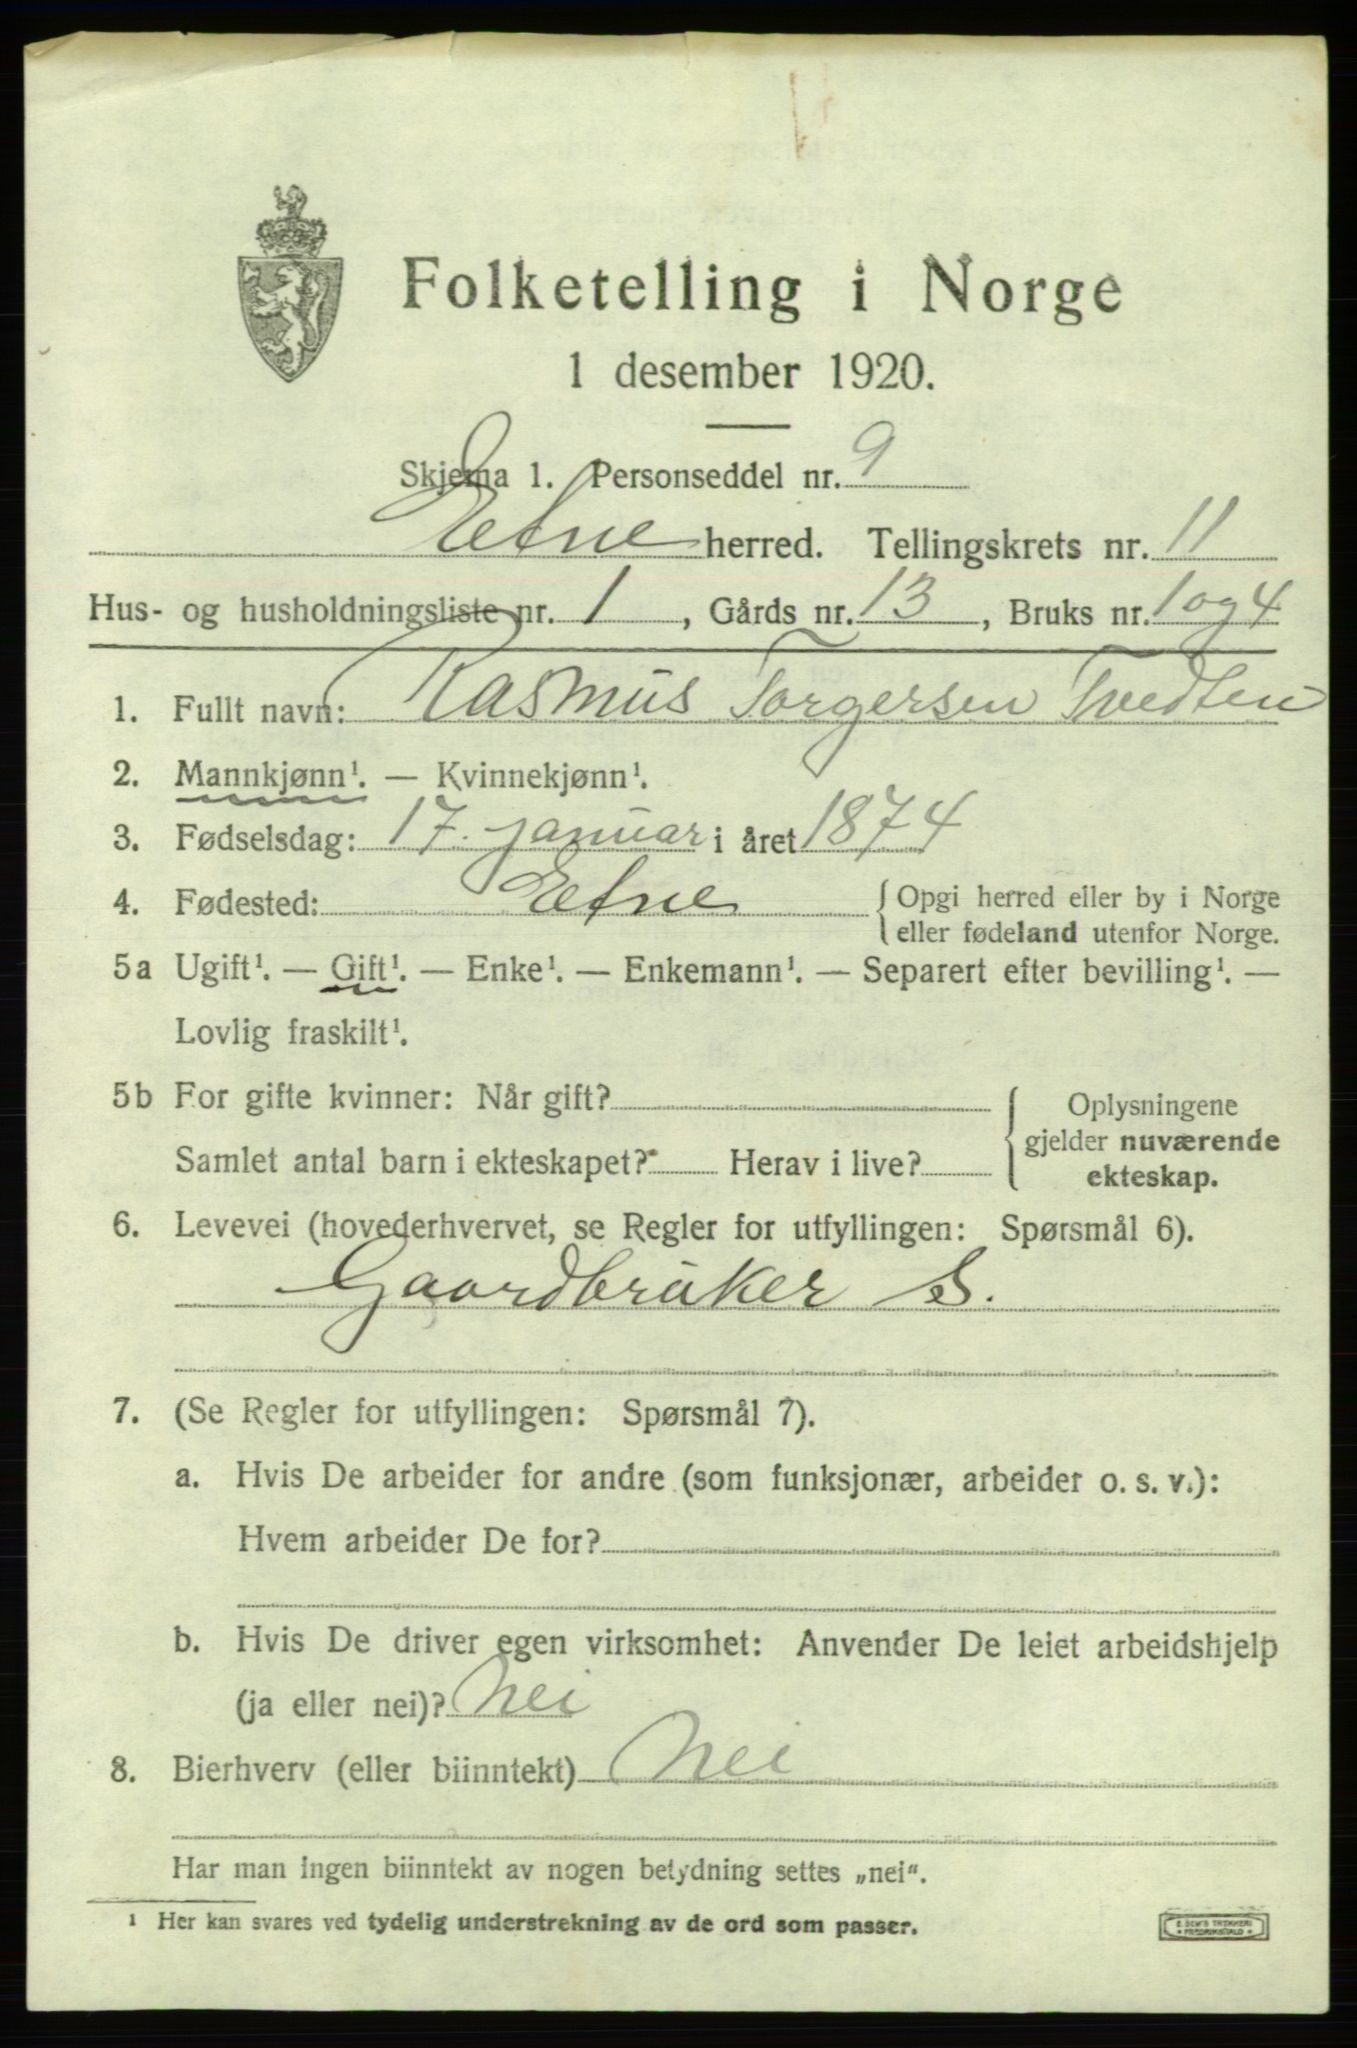 Folketelling i Norge
1 desember 1920.
Skjema 1. Personseddel nr. 9
Etne herred. Tellingskrets nr. 11
Hus- og husholdningsliste nr. 1, Gårds nr. 13, Bruks nr. 1 og 4
1. Fullt navn: Rasmus Torgersen Tvedten
2. Mannkjønn¹. — Kvinnekjønn¹.
3. Fødselsdag: 17. januar i året 1874
4. Fødested: Etne {Opgi herred eller by i Norge
eller fødeland utenfor Norge.
5a Ugift¹. — Gift¹. — Enke¹. — Enkemann¹. — Separert efter bevilling¹. —
Lovlig fraskilt¹.
5b For gifte kvinner: Når gift? {Oplysningene
gjelder nuværende
Samlet antal barn i ekteskapet? Herav i live?
ekteskap.
6. Levevei (hovederhvervet, se Regler for utfyllingen: Spørsmål 6).
Gaardbruker S.
7. (Se Regler for utfyllingen: Spørsmål 7).
a. Hvis De arbeider for andre (som funksjonær, arbeider o. s. v.):
Hvem arbeider De for?
b. Hvis De driver egen virksomhet: Anvender De leiet arbeidshjelp
(ja eller nei)? Nei
8. Bierhverv (eller biinntekt) Nei
Har man ingen biinntekt av nogen betydning settes „nei“.
¹ Her kan svares ved tydelig understrekning av de ord som passer.